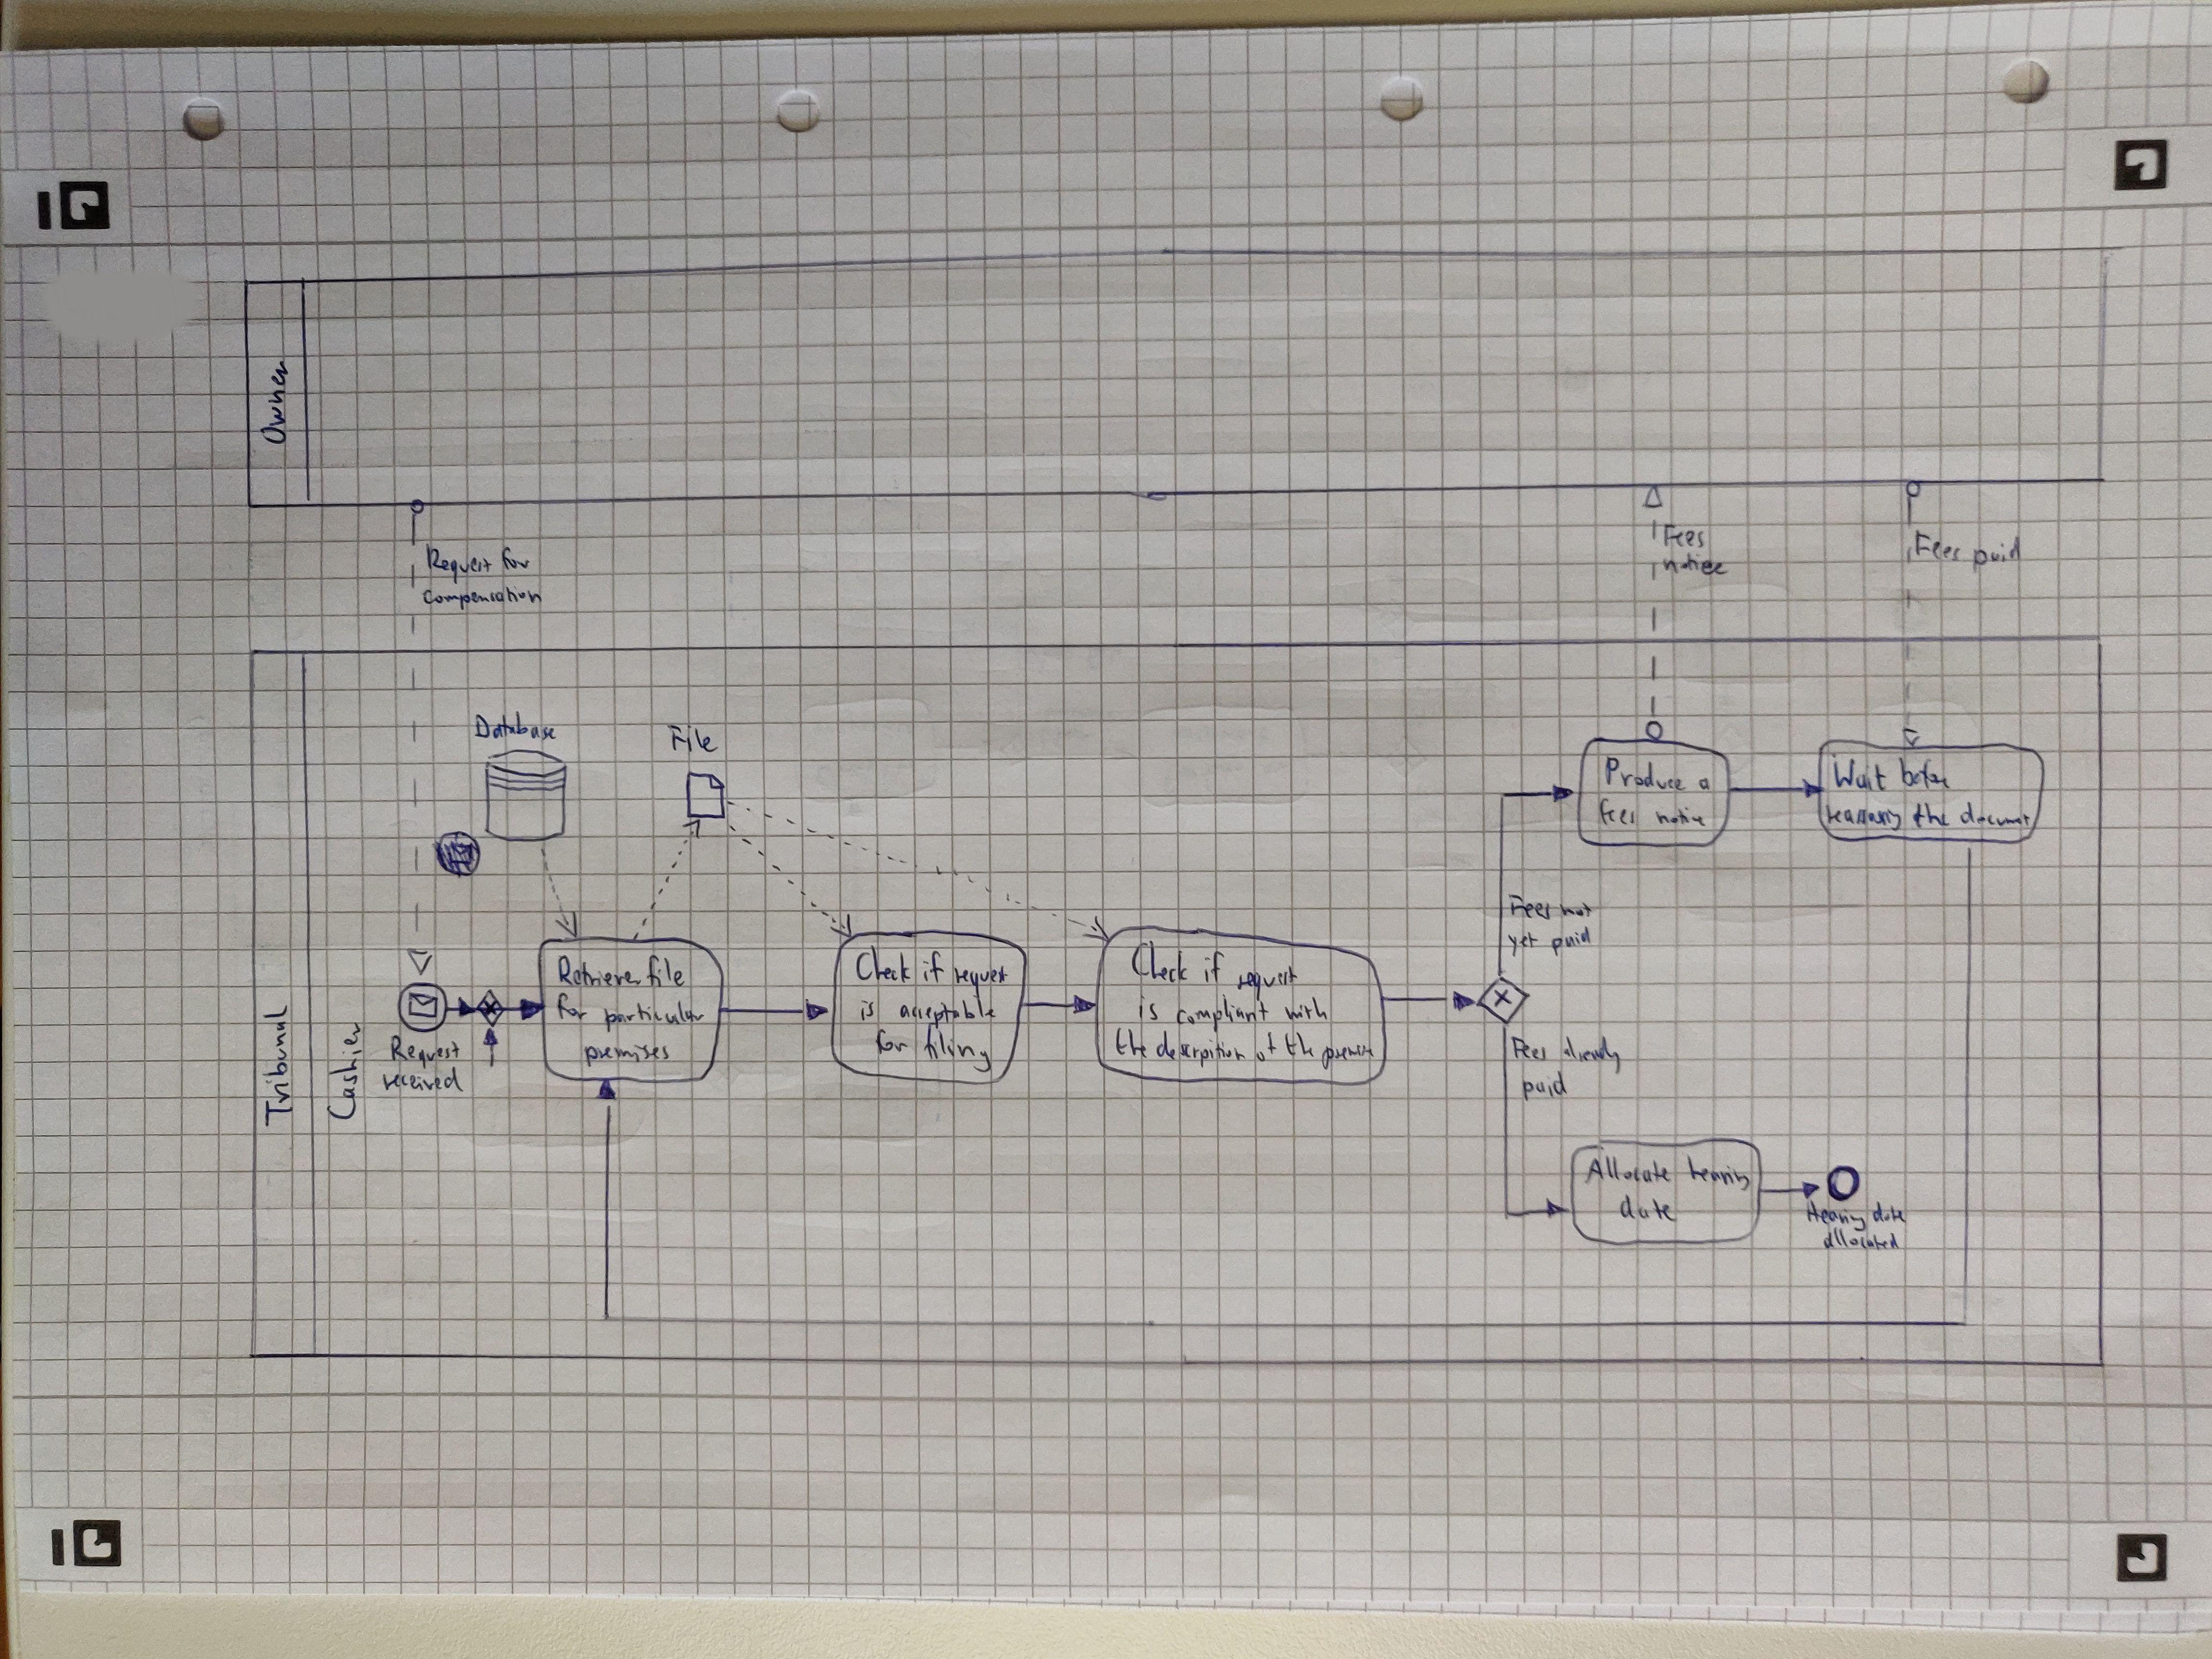 Owner
Request for
compensation
Fees
notice
Fees paid
Tribunal
Cashier
Database
File
Request
received
Retrieve file
for particular
premises
Check if request
is acceptable
for filing
Check if request
is compliant with
the descrpition of the premise
Fees not
yet paid
Fees already
paid
Produce a
fees notice
Wait before
the document
Allocate hearing
date
Hearing date
allocated